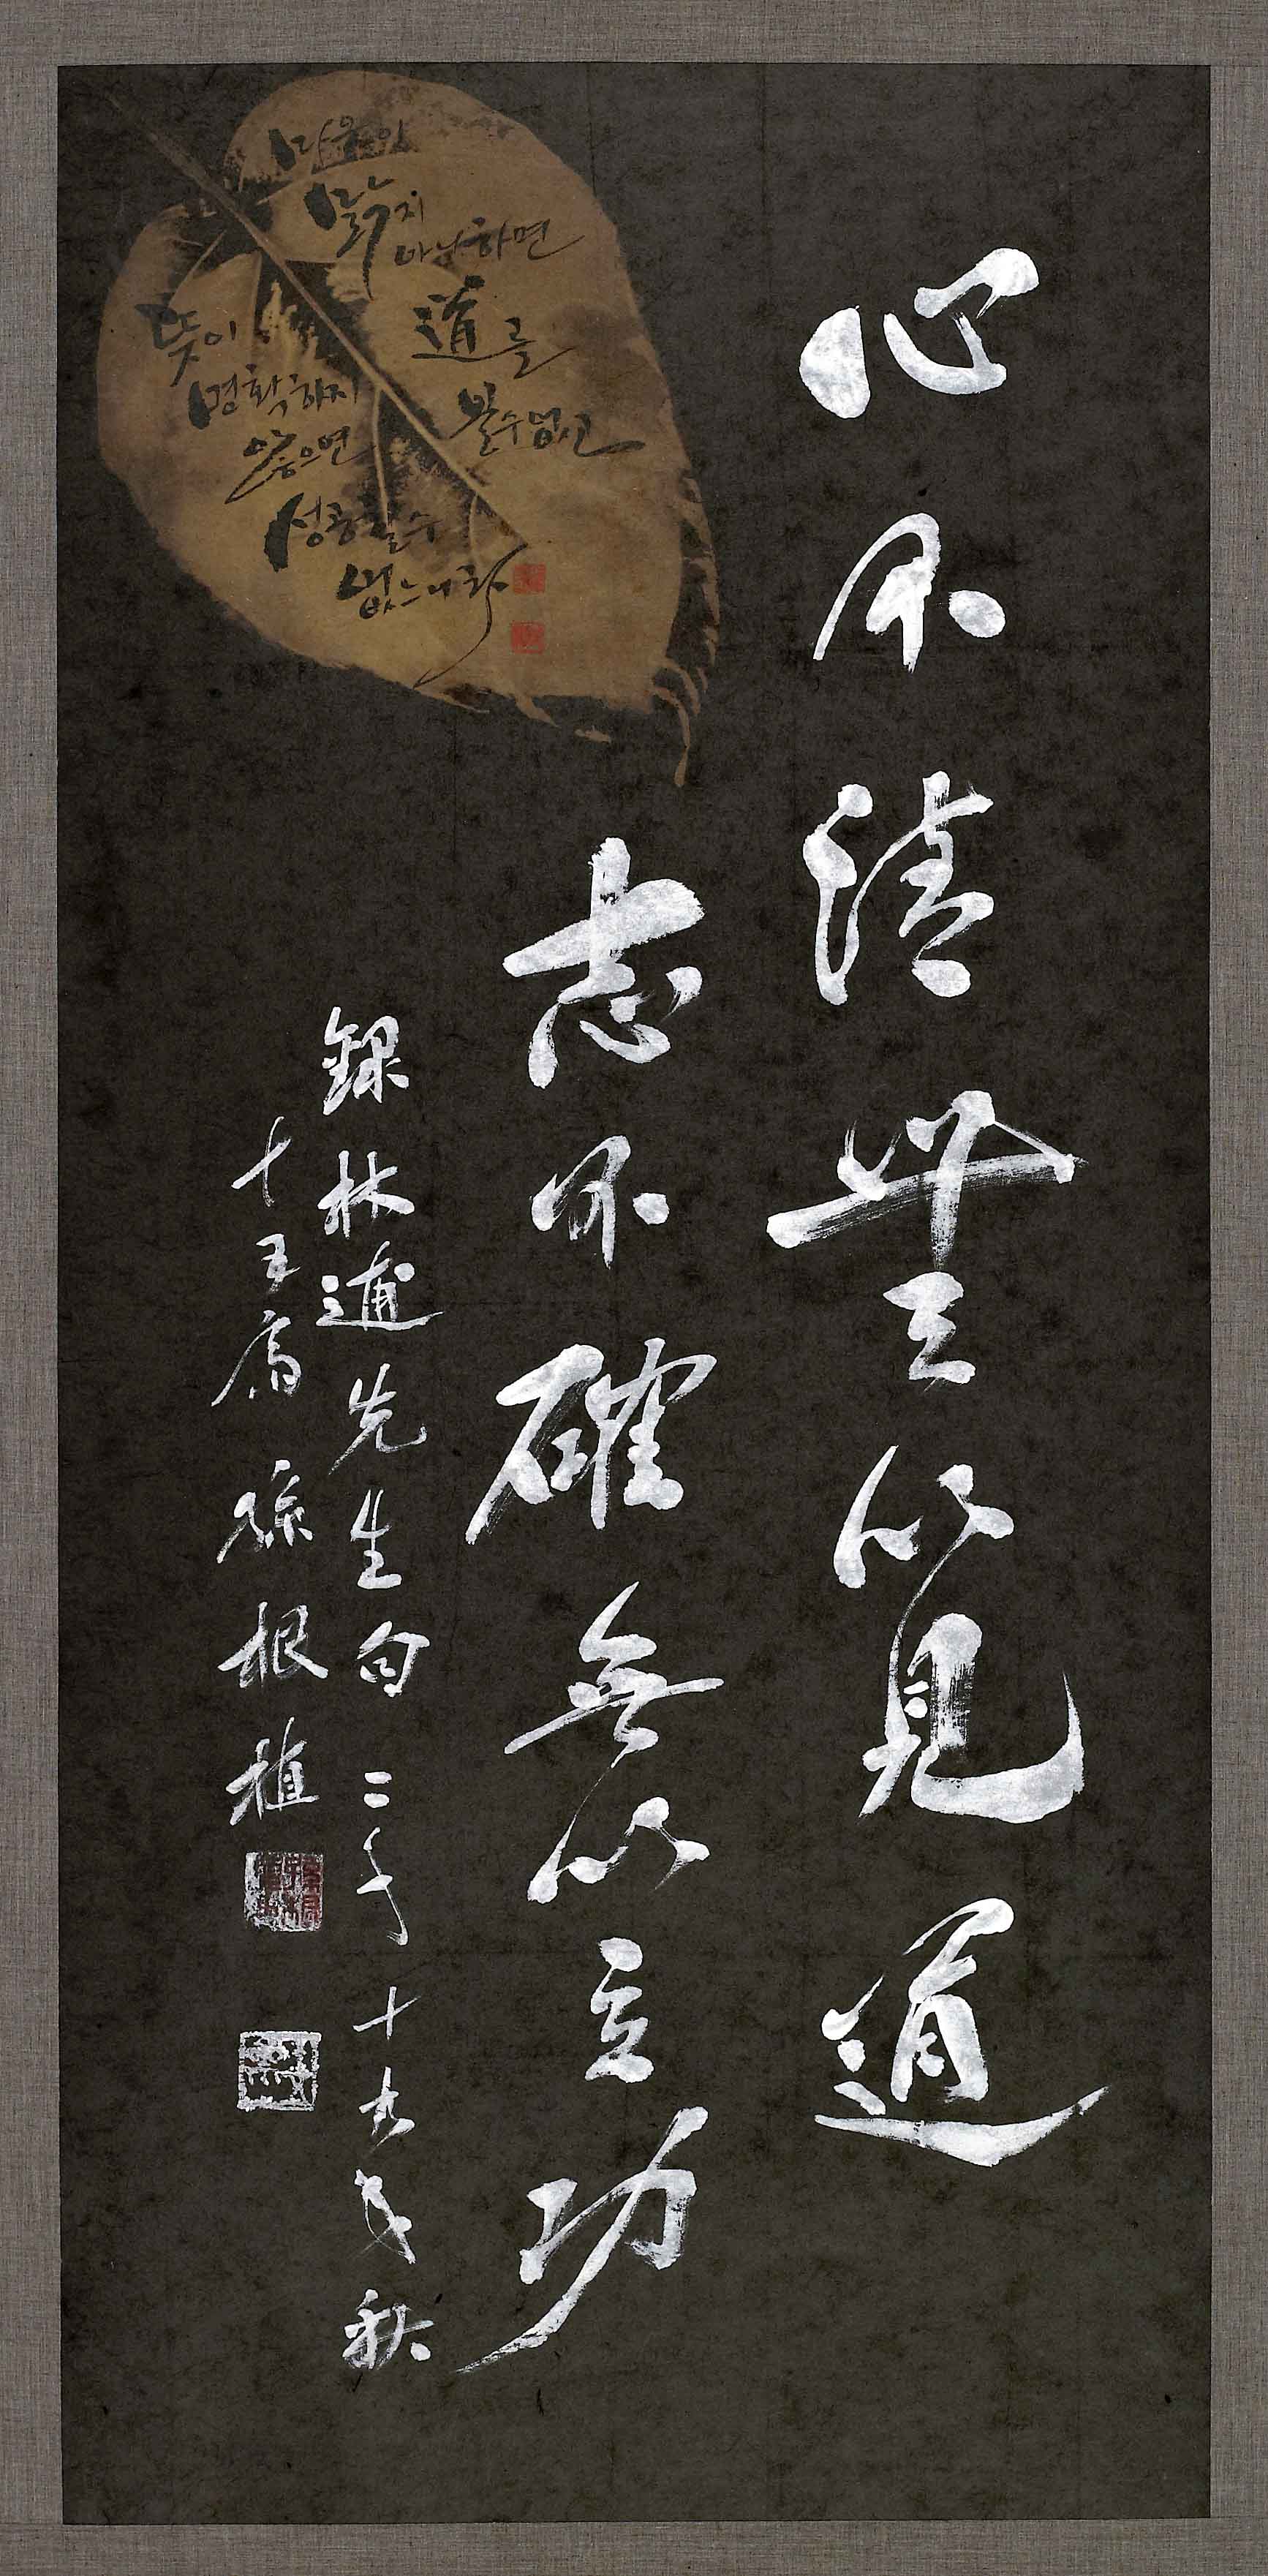 心不淸無以見道
志不確無以立功
錄林逋先生句 二千十九年秋
孫根植
마음이
맑지
아니하면
道를
볼수없고
뜻이
명확하지
않으면
성공할수
없느니라